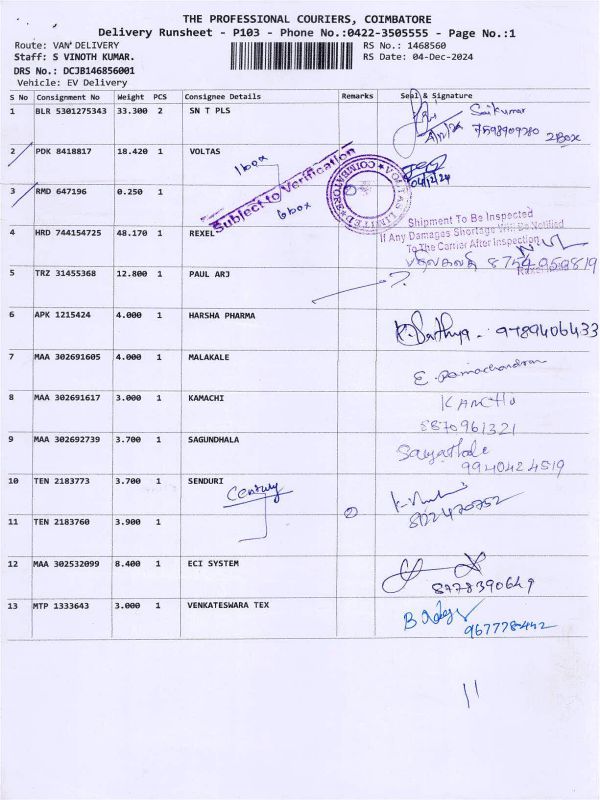 THE PROFESSIONAL COURIERS, COIMBATORE
Delivery Runsheet - P103 - Phone No.:0422-3505555 - Page No.:1
Route: VAN DELIVERY
RS No.: 1468560
Staff: S VINOTH KUMAR.
RS Date: 04-Dec-2024
DRS No.: DCJB146856001
Vehicle: EV Delivery
S No Consignment No Weight PCS Consignee Details Remarks Seal & Signature
1 BLR 5301275343 33.300 2 SN T PLS Saikumar
7598909780 2Box
2 PDK 8418817 18.420 1 VOLTAS
1box
04/12/24
Subject to Verification
VOLTAS LIMITED COIMBATORE
3 RMD 647196 0.250 1
6box
Shipment To Be Inspected
If Any Damages Shortage Will Be Notified
To The Carrier After Inspection
4 HRD 744154725 48.170 1 REXEL
8754959819
5 TRZ 31455368 12.800 1 PAUL ARJ ?
6 APK 1215424 4.000 1 HARSHA PHARMA
K. Sathya - 9789406433
7 MAA 302691605 4.000 1 MALAKALE
E. Ramachandran
8 MAA 302691617 3.000 1 KAMACHI
8870961321
9 MAA 302692739 3.700 1 SAGUNDHALA
9940424519
10 TEN 2183773 3.700 1 SENDURI
Century
802470752
11 TEN 2183760 3.900 1
12 MAA 302532099 8.400 1 ECI SYSTEM
8778390649
13 MTP 1333643 3.000 1 VENKATESWARA TEX
967778442
11